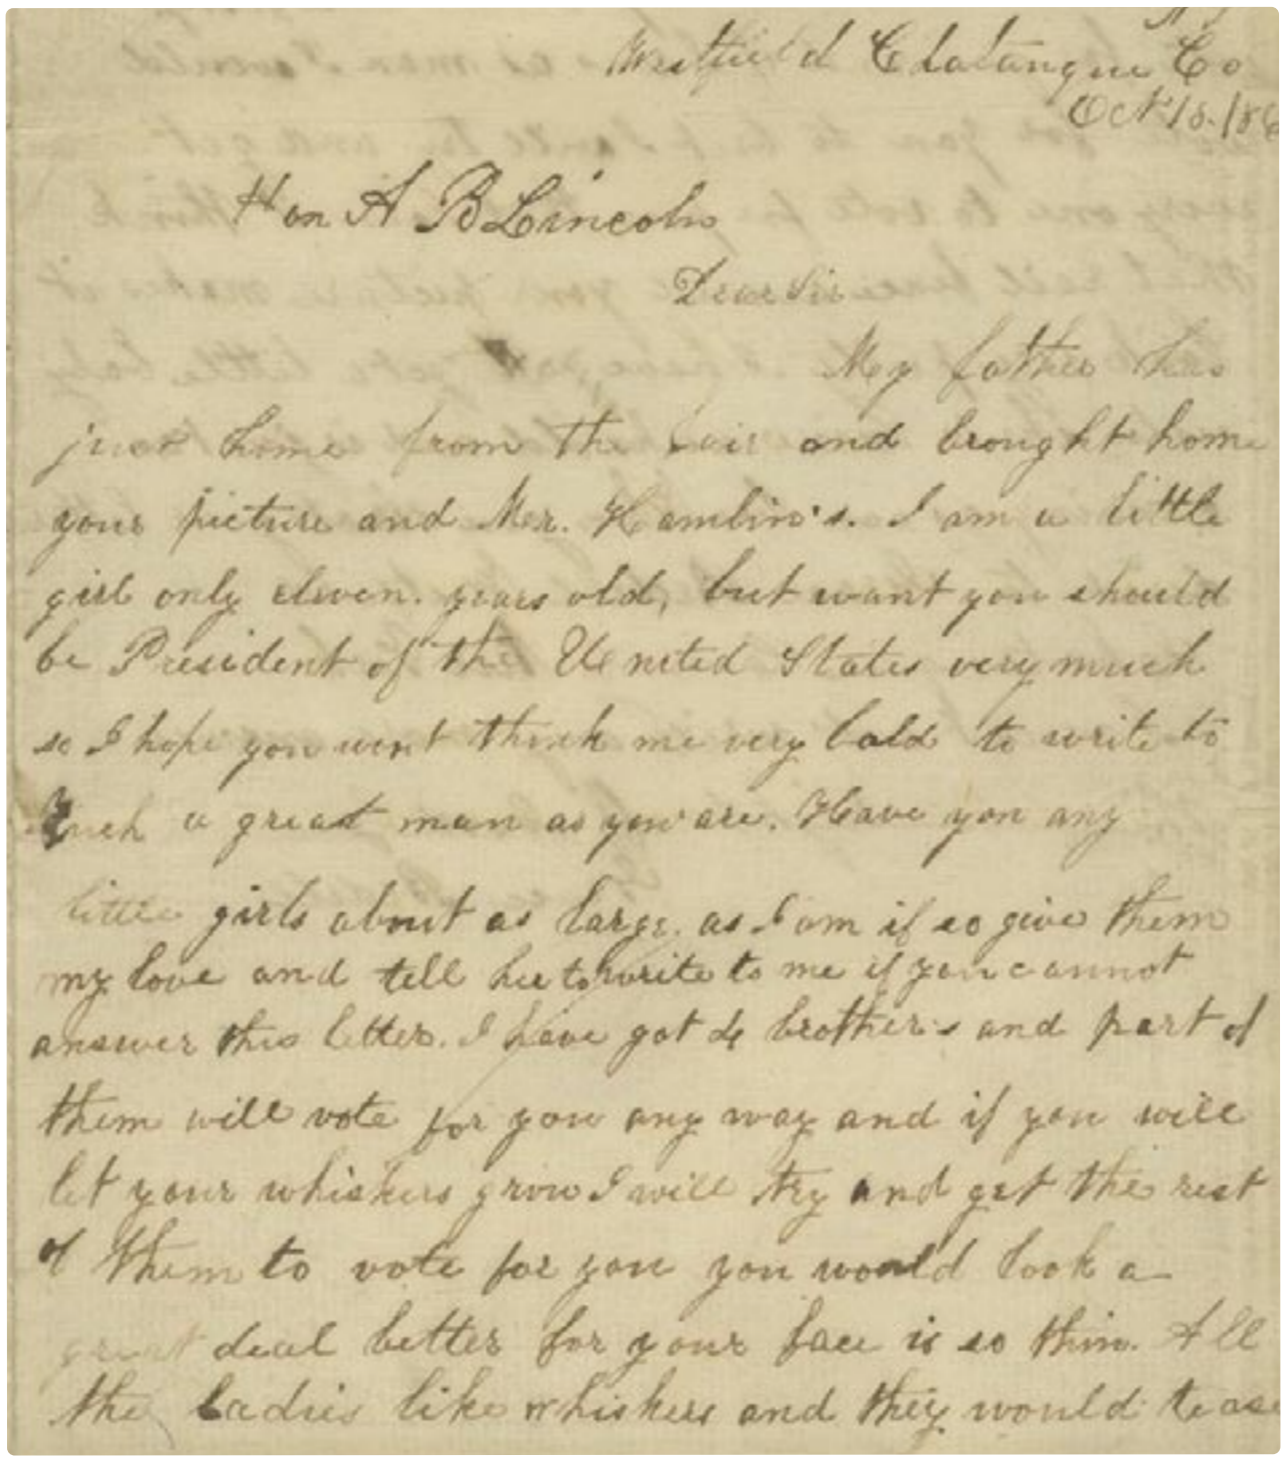 N Y
Westfield Chatauque Co
Oct 15. 186
Hon A B Lincoln
Dear Sir
My father has
just home from the fair and brought home
your picture and Mr. Hamlin's. I am a little
girl only eleven. years old, but want you should
be President of the United States very much
so I hope you wont think me very bold to write to
such a great man as you are. Have you any
little girls about as large as I am if so give them
my love and tell her to write to me if you cannot
answer this letter. I have got 4 brothers and part of
them will vote for you any way and if you will
let your whiskers grow I will try and get the rest
of them to vote for you you would look a
great deal better for your face is so thin. All
the ladies like whiskers and they would tease